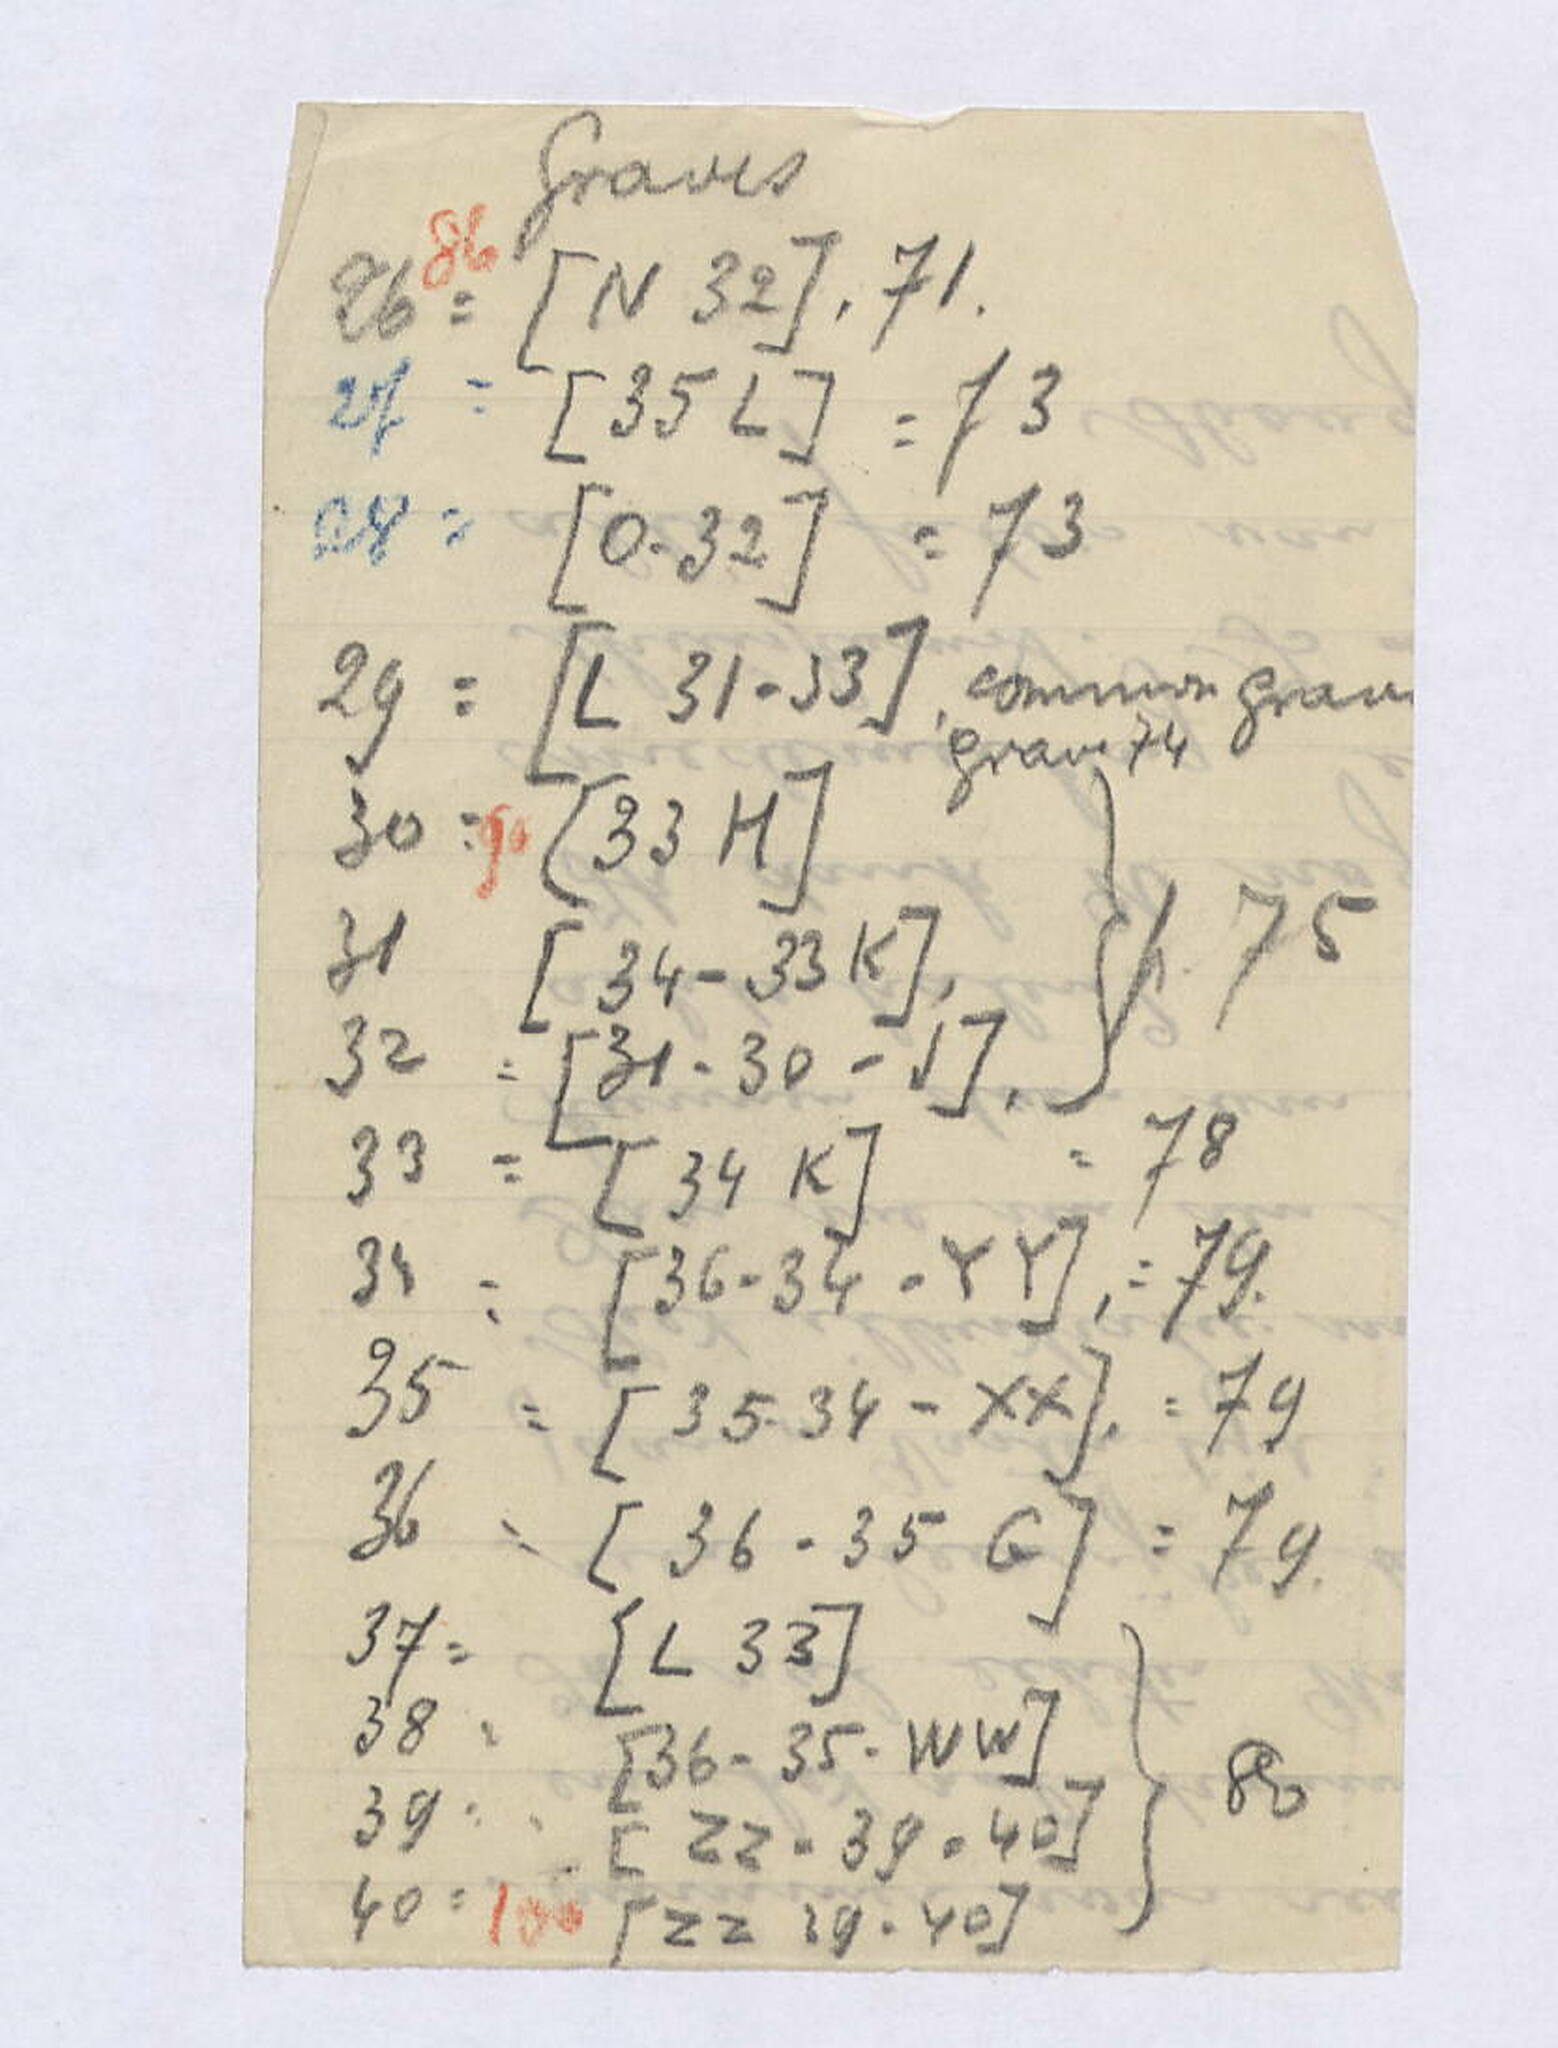 Graves
26 = 86 [N 32], 71.
27 = [35 L] = 73
28 = [O-32] = 73
29 = [L 31-33], common grave
grave 74
30 = 90 [33 H]
31 [34-33 K], } p. 75
32 = [31-30-J],
33 = [34 K] = 78
34 = [36-34-YY], = 79.
35 = [35-34-XX], = 79
36 = [36-35 G] = 79.
37 = [L 33]
38 = [36-35-WW] } 80
39 = [ZZ-39-40]
40 = 100 [ZZ 39-40]